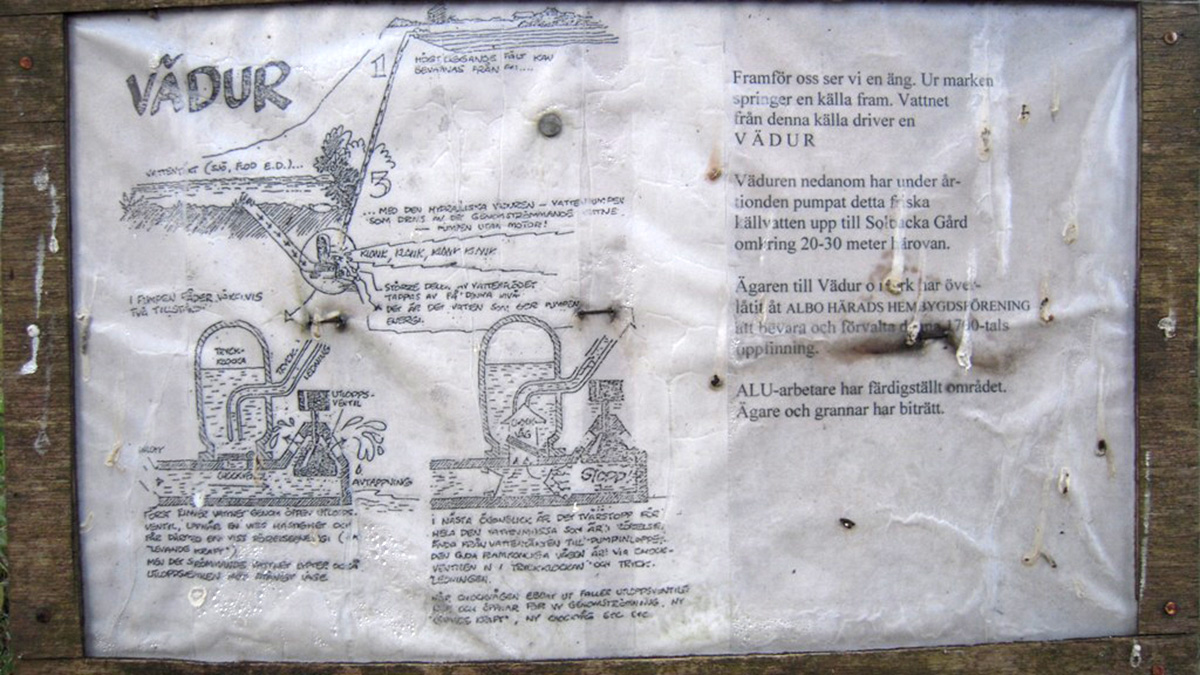 VÄDUR
1
HÖGT LIGGANDE FÄLT KAN
BEVATTNAS FRÅN
VATTENTÄKT (SJÖ, FLOD E.D.)...
3
... MED DEN HYDRAULISKA VÄDUREN - VATTENPUMPEN
SOM DRIVS AV DET GENOMSTRÖMMANDE VATTNET.
- PUMPEN UTAN MOTOR!
KLONK, KLONK, KLONK KLONK
STÖRRE DELEN AV VATTENFLÖDET
TAPPAS AV PÅ DENNA NIVÅ
DET ÄR DET VATTEN SOM GER PUMPEN
ENERGI.
I PUMPEN RÅDER VÄXELVIS
TVÅ TILLSTÅND:
TRYCK-
KLOCKA
TRYCK-
LEDNING
UTLOPPS-
VENTIL
AVTAPPNING
CHOCK
VÅG
STOPP
FÖRST RINNER VATTNET GENOM ÖPPEN UTLOPPS-
VENTIL, UPPNÅR EN VISS HASTIGHET OCH
FÅR DÄRMED EN VISS RÖRELSEENERGI (=
"LEVANDE KRAFT")
MEN DET STRÖMMANDE VATTNET LYFTER OCKSÅ
UTLOPPSVENTILEN
I NÄSTA ÖGONBLICK ÄR DET TVÄRSTOPP FÖR
HELA DEN VATTENMASSA SOM ÄR I RÖRELSE,
ÄNDA FRÅN VATTENTÄKTEN TILL PUMPINLOPPET.
DEN ENDA FRAMKOMLIGA VÄGEN ÄR VIA CHOCK-
VENTILEN IN I TRYCKKLOCKAN OCH TRYCK-
LEDNINGEN.
NÄR CHOCKVÅGEN EBBAT UT FALLER UTLOPPSVENTILEN
NER OCH ÖPPNAR FÖR NY GENOMSTRÖMNING, NY
"LEVANDE KRAFT", NY CHOCKVÅG ETC ETC
Framför oss ser vi en äng. Ur marken
springer en källa fram. Vattnet
från denna källa driver en
VÄDUR
Väduren nedanom har under år-
tionden pumpat detta friska
källvatten upp till Solbacka Gård
omkring 20-30 meter härovan.
Ägaren till Vädur o mark har över-
låtit åt ALBO HÄRADS HEMBYGDSFÖRENING
att bevara och förvalta denna 1700-tals
uppfinning.
ALU-arbetare har färdigställt området.
Ägare och grannar har biträtt.